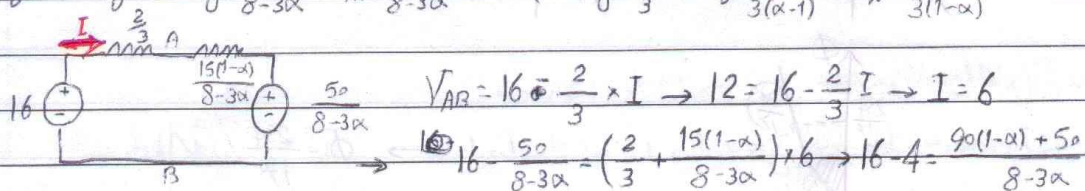 8-3α 8-3α 3 3(α-1) 3(1-α)
I 2/3 A
15(1-α)/(8-3α)
16 + - + - 50/(8-3α)
B
V_AB = 16 - 2/3 × I → 12 = 16 - 2/3 I → I = 6
→ 16 - 50/(8-3α) = (2/3 + 15(1-α)/(8-3α)) × 6 → 16 - 4 = (90(1-α) + 50)/(8-3α)